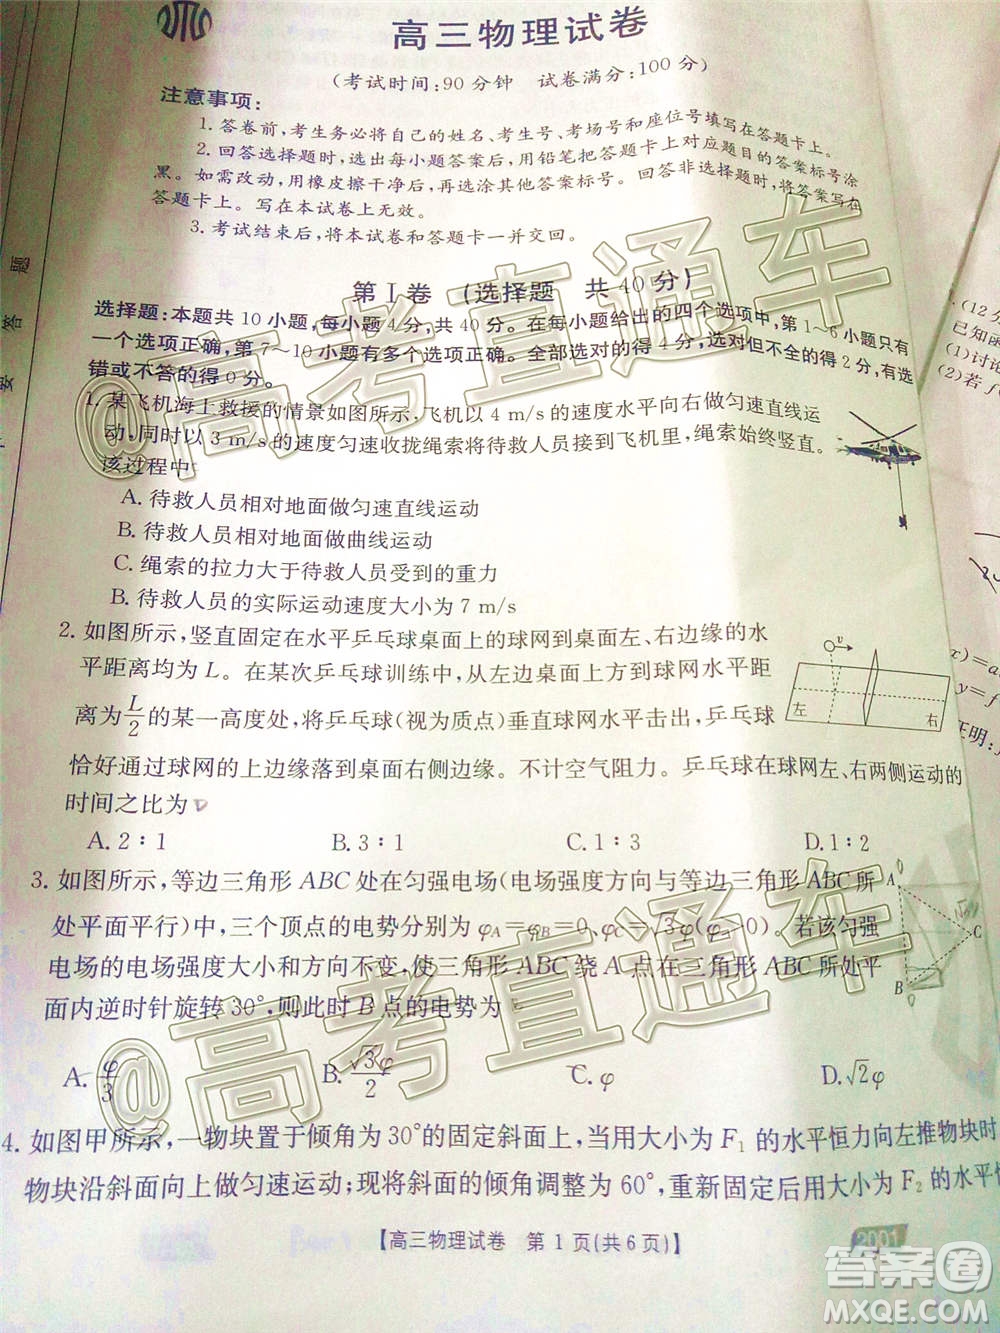 高三物理试卷
(考试时间:90分钟 试卷满分:100分)
注意事项:
1. 答卷前,考生务必将自己的姓名、考生号、考场号和座位号填写在答题卡上。
2. 回答选择题时,选出每小题答案后,用铅笔把答题卡上对应题目的答案标号涂
黑。如需改动,用橡皮擦干净后,再选涂其他答案标号。回答非选择题时,将答案写在
答题卡上。写在本试卷上无效。
3. 考试结束后,将本试卷和答题卡一并交回。
第Ⅰ卷 (选择题 共40分)
选择题:本题共10小题,每小题4分,共40分。在每小题给出的四个选项中,第1~6小题只有
一个选项正确,第7~10小题有多个选项正确。全部选对的得4分,选对但不全的得2分,有选
错或不答的得0分。
1. 某飞机海上救援的情景如图所示,飞机以4 m/s的速度水平向右做匀速直线运
动,同时以3 m/s的速度匀速收拢绳索将待救人员接到飞机里,绳索始终竖直。
该过程中
A. 待救人员相对地面做匀速直线运动
B. 待救人员相对地面做曲线运动
C. 绳索的拉力大于待救人员受到的重力
D. 待救人员的实际运动速度大小为7 m/s
2. 如图所示,竖直固定在水平乒乓球桌面上的球网到桌面左、右边缘的水
平距离均为L。在某次乒乓球训练中,从左边缘上方与球网水平距
离为L/2的某一高度处,将乒乓球(视为质点)垂直球网水平击出,乒乓球
恰好通过球网的上边缘落到桌面右侧边缘。不计空气阻力。乒乓球在球网左、右两侧运动的
时间之比为 D
v
左 右
A. 2∶1 B. 3∶1 C. 1∶3 D. 1∶2
3. 如图所示,等边三角形ABC处在匀强电场(电场强度方向与等边三角形ABC所
处平面平行)中,三个顶点的电势分别为φA=φB=0、φC=√3φ(φ>0)。若该匀强
电场的电场强度大小和方向不变,使三角形ABC绕A点在三角形ABC所处平
面内逆时针旋转30°,则此时B点的电势为
C
B
A. φ/3 B. √3φ/2 C. φ D. √2φ
4. 如图甲所示,一物块置于倾角为30°的固定斜面上,当用大小为F1的水平恒力向左推物块时
物块沿斜面向上做匀速运动;现将斜面的倾角调整为60°,重新固定后用大小为F2的水平
【高三物理试卷 第1页(共6页)】
2001
题
答
要
(12分
已知函
(1)讨论
(2)若
x)=a
y=f
证明:
@高考直通车
@高考直通车
答案圈
MXQE.COM